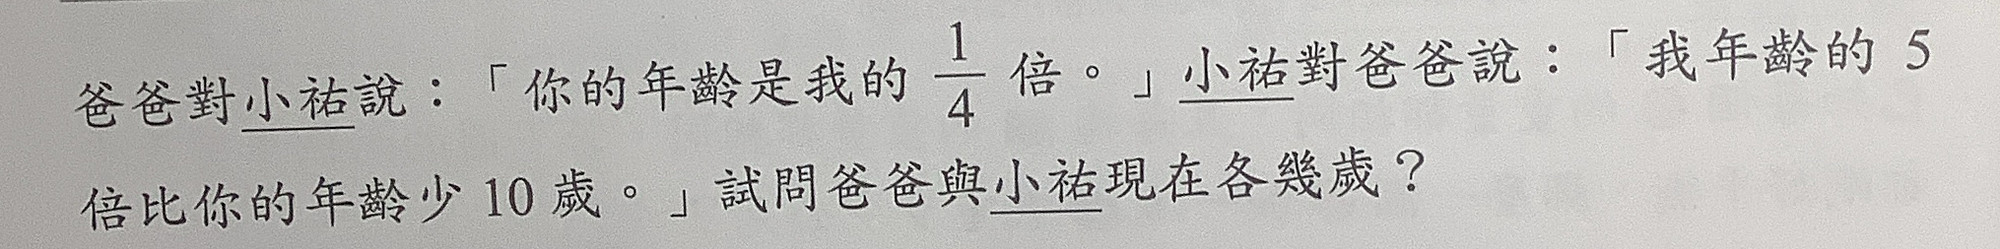 爸爸對小祐說：「你的年齡是我的 1/4 倍。」小祐對爸爸說：「我年齡的 5
倍比你的年齡少 10 歲。」試問爸爸與小祐現在各幾歲？